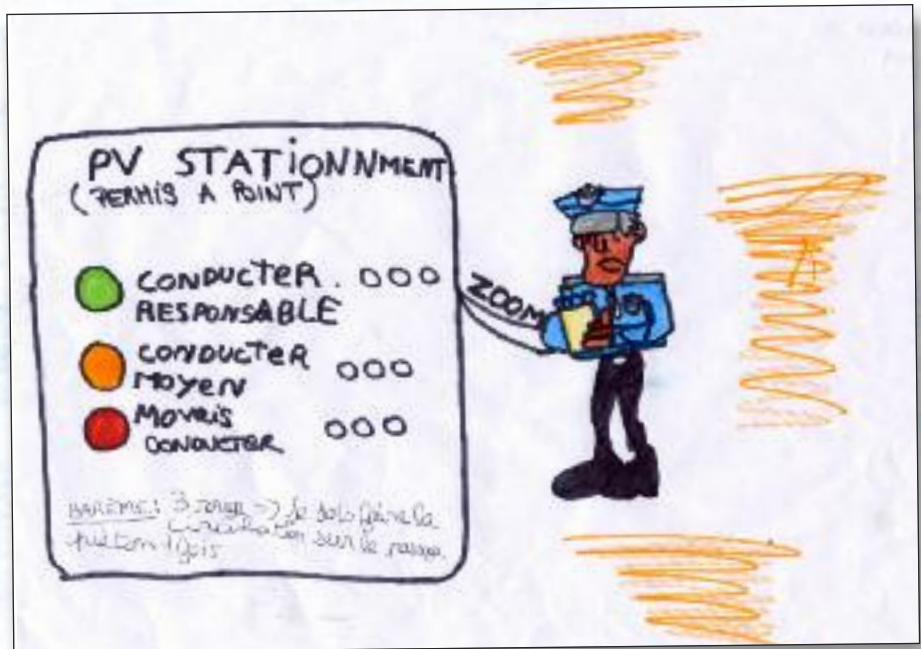 PV STATIONNMENT
(PERMIS A POINT)
CONDUCTER
RESPONSABLE
ZOOM
CONDUCTER
MOYEN
MOVAIS
CONDUCTER
BAREME: 3 => Je dois faire la
circulation sur le
piéton 1 fois